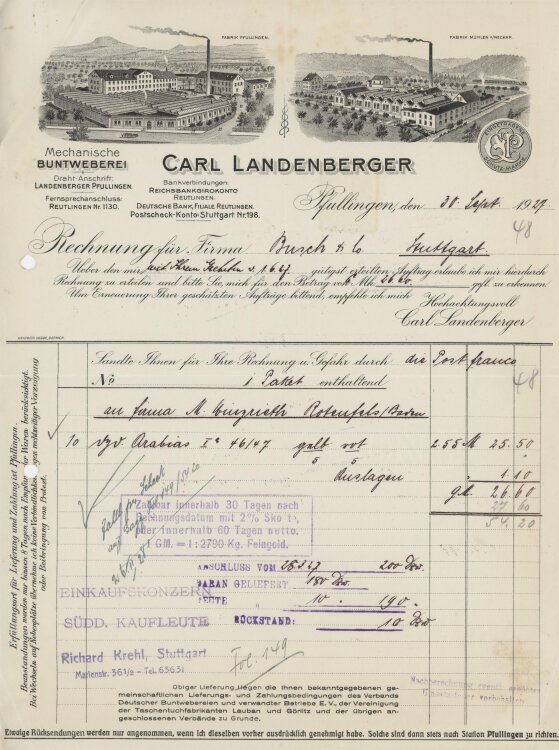 FABRIK PFULLINGEN.
FABRIK MÜHLEN A/NECKAR.
Mechanische
BUNTWEBEREI
CARL LANDENBERGER
EINGETRAGENE
SCHUTZ-MARKE
Draht-Anschrift:
LANDENBERGER PFULLINGEN.
Fernsprechanschluss:
REUTLINGEN Nr. 1130.
Bankverbindungen:
REICHSBANKGIROKONTO
REUTLINGEN.
DEUTSCHE BANK, FILIALE REUTLINGEN.
Postscheck-Konto: Stuttgart Nr. 198.
Pfullingen, den 30 Sept. 1927.
48
Rechnung für Firma Busch & Co Stuttgart.
Ueber den mir mit Ihrem v. 1.6.27. gütigst erteilten Auftrag erlaube ich mir hierdurch
Rechnung zu erteilen und bitte Sie, mich für den Betrag von Mk. 26.60 gefl. zu erkennen.
Um Erneuerung Ihrer geschätzten Aufträge bittend, empfehle ich mich
Hochachtungsvoll
Carl Landenberger
Sandte Ihnen für Ihre Rechnung u. Gefahr durch die Post franco
No 1 Paket enthaltend
48
an Firma M. Rotenfels/Baden
10 Dzd. Arabias Ia 46/47 gelb rot 2.55 M 25.50
5 5
Auslagen 1.10
26.60
27.60
54.20
Zahlbar innerhalb 30 Tagen nach
Rechnungsdatum mit 2% Skonto,
oder innerhalb 60 Tagen netto.
1 GM. = 1 : 2790 Kg. Feingold.
ANSCHLUSS VOM 28.3.27 200 Dzd.
DARAN GELIEFERT 180 Dzd.
HEUTE 10 " 190 "
RÜCKSTAND: 10 Dzd
EINKAUFSKONZERN
SÜDD. KAUFLEUTE
Richard Krehl, Stuttgart
Marienstr. 36 1/2 - Tel. 63631
Fol. 149
Obiger Lieferung liegen die Ihnen bekanntgegebenen ge-
meinschaftlichen Lieferungs- und Zahlungsbedingungen des Verbands
Deutscher Buntwebereien und verwandter Betriebe E. V., der Vereinigung
der Taschentuchfabrikanten Lauban und Görlitz und der übrigen an-
geschlossenen Verbände zu Grunde.
Nachberechnung eventl. erhöhter
Umsatzsteuer vorbehalten
Erfüllungsort für Lieferung und Zahlung ist Pfullingen.
Beanstandungen werden nur binnen 8 Tagen nach Empfang der Waren berücksichtigt.
Bei Wechseln auf Nebenplätze übernehme ich keine Verbindlichkeit wegen rechtzeitiger Vorzeigung
oder Beibringung von Protest.
Etwaige Rücksendungen werden nur angenommen, wenn ich dieselben vorher ausdrücklich genehmigt habe. Solche sind dann stets nach Station Pfullingen zu richten.